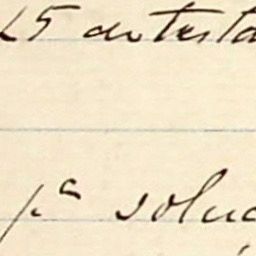 25 de testa
pª soluc